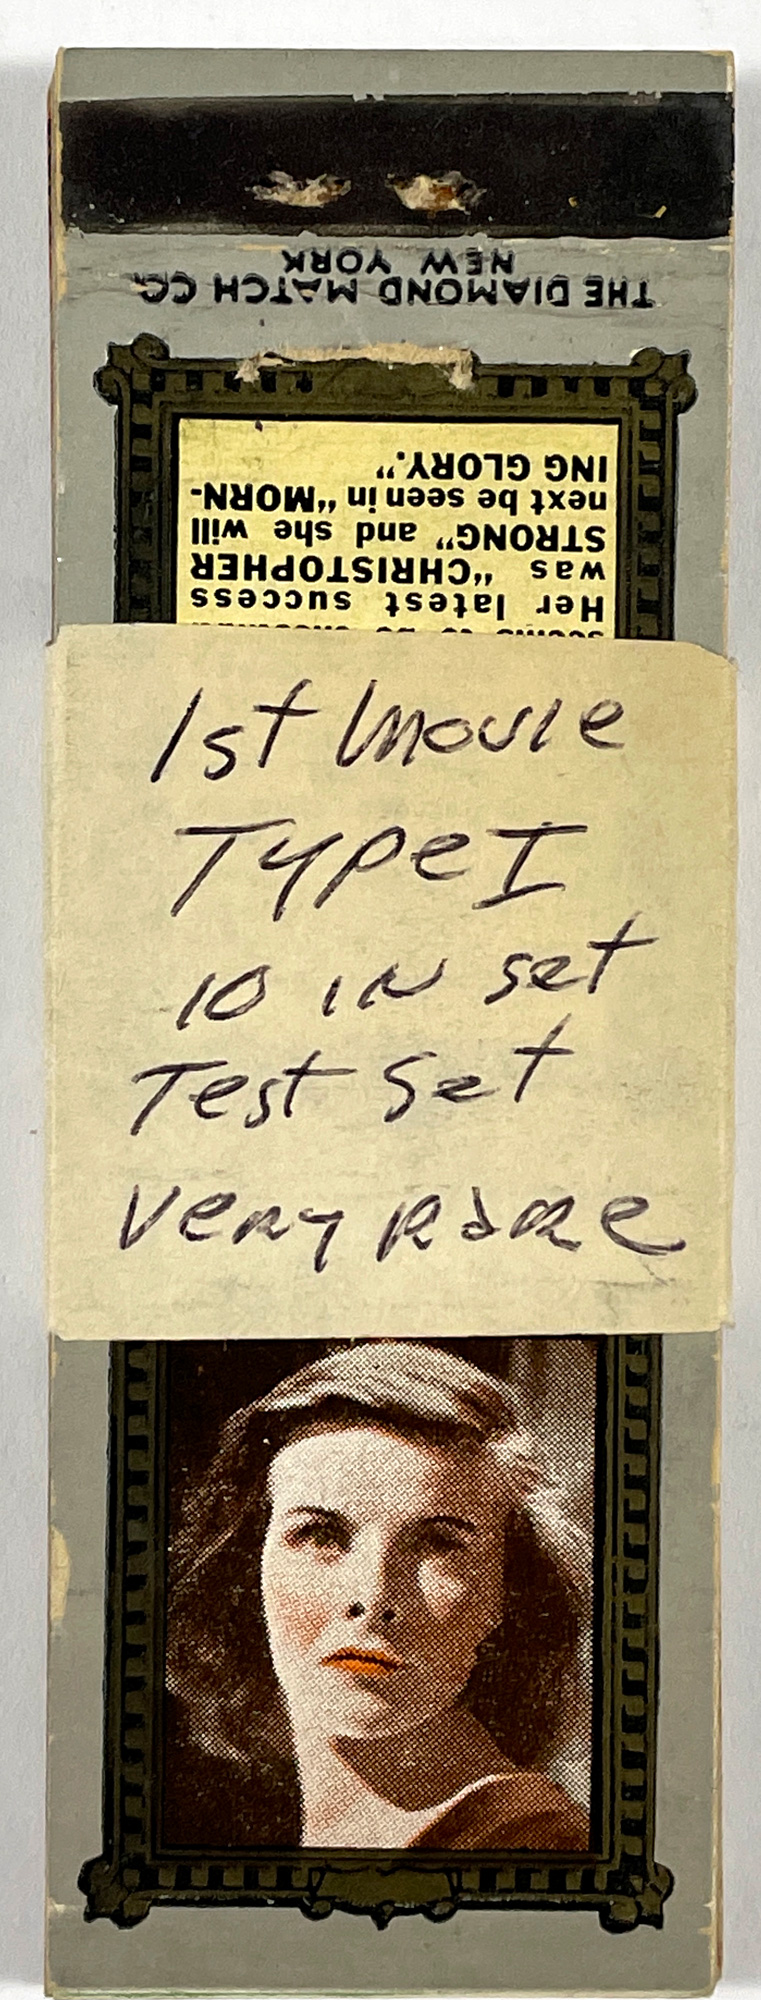 Her latest success
was "CHRISTOPHER
STRONG" and she will
next be seen in "MORN-
ING GLORY."
THE DIAMOND MATCH CO.
NEW YORK
1st Movie
Type I
10 IN set
Test Set
Very Rare